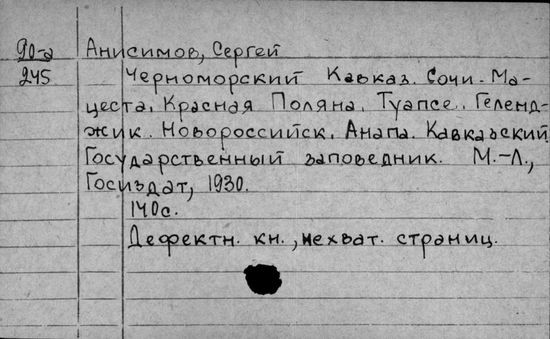 90-а Анисимов, Сергей
245 Черноморский Кавказ. Сочи-Ма-
цеста, Красная Поляна, Туапсе, Геленд-
жик. Новороссийск, Анапа. Кавказский
Государственный заповедник. М.-Л.,
Госиздат, 1930.
140с.
Дефектн. кн., нехват. страниц.